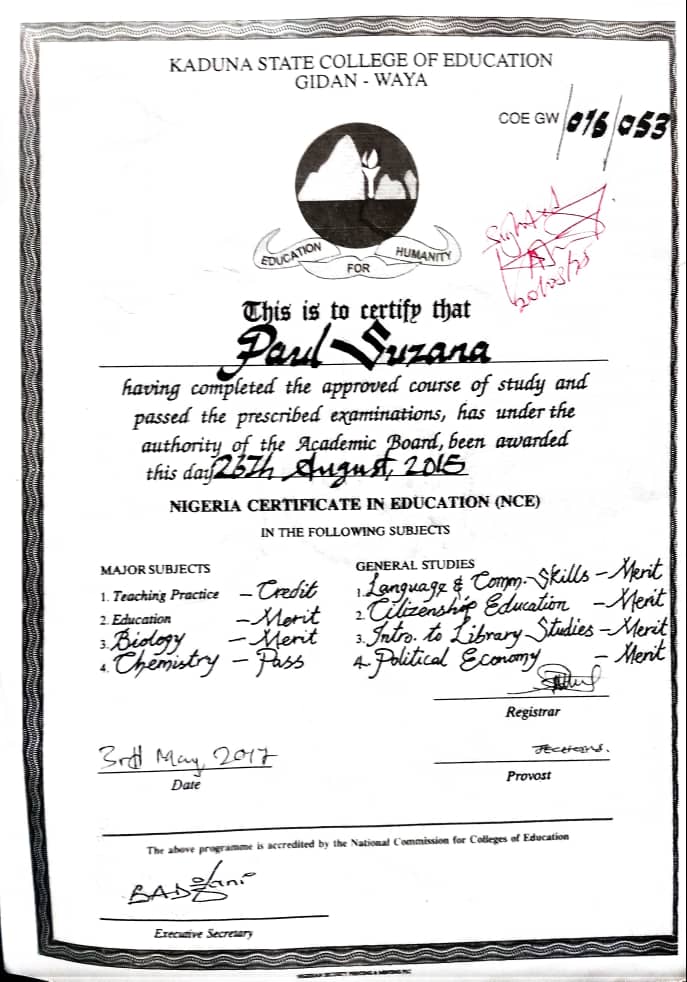 KADUNA STATE COLLEGE OF EDUCATION
GIDAN - WAYA
COE GW 016/053
EDUCATION FOR HUMANITY
Sighted
20/03/25
This is to certify that
Paul Suzana
having completed the approved course of study and
passed the prescribed examinations, has under the
authority of the Academic Board, been awarded
this day 25th August, 2015
NIGERIA CERTIFICATE IN EDUCATION (NCE)
IN THE FOLLOWING SUBJECTS
MAJOR SUBJECTS
1. Teaching Practice – Credit
2. Education – Merit
3. Biology – Merit
4. Chemistry – Pass
GENERAL STUDIES
1. Language & Comm. Skills – Merit
2. Citizenship Education – Merit
3. Intro. to Library Studies – Merit
4. Political Economy – Merit
Registrar
3rd May, 2017
Date
Provost
The above programme is accredited by the National Commission for Colleges of Education
Executive Secretary
NIGERIAN SECURITY PRINTING & MINTING PLC